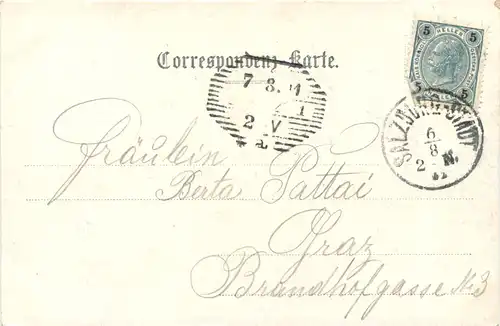 5 HELLER 5
Correspondenz-Karte.
7 8. 1
1
2 V
SALZBURG-STADT
6
8
2 N.
Fräulein
Berta Pattai
Graz
Brandhofgasse No 3